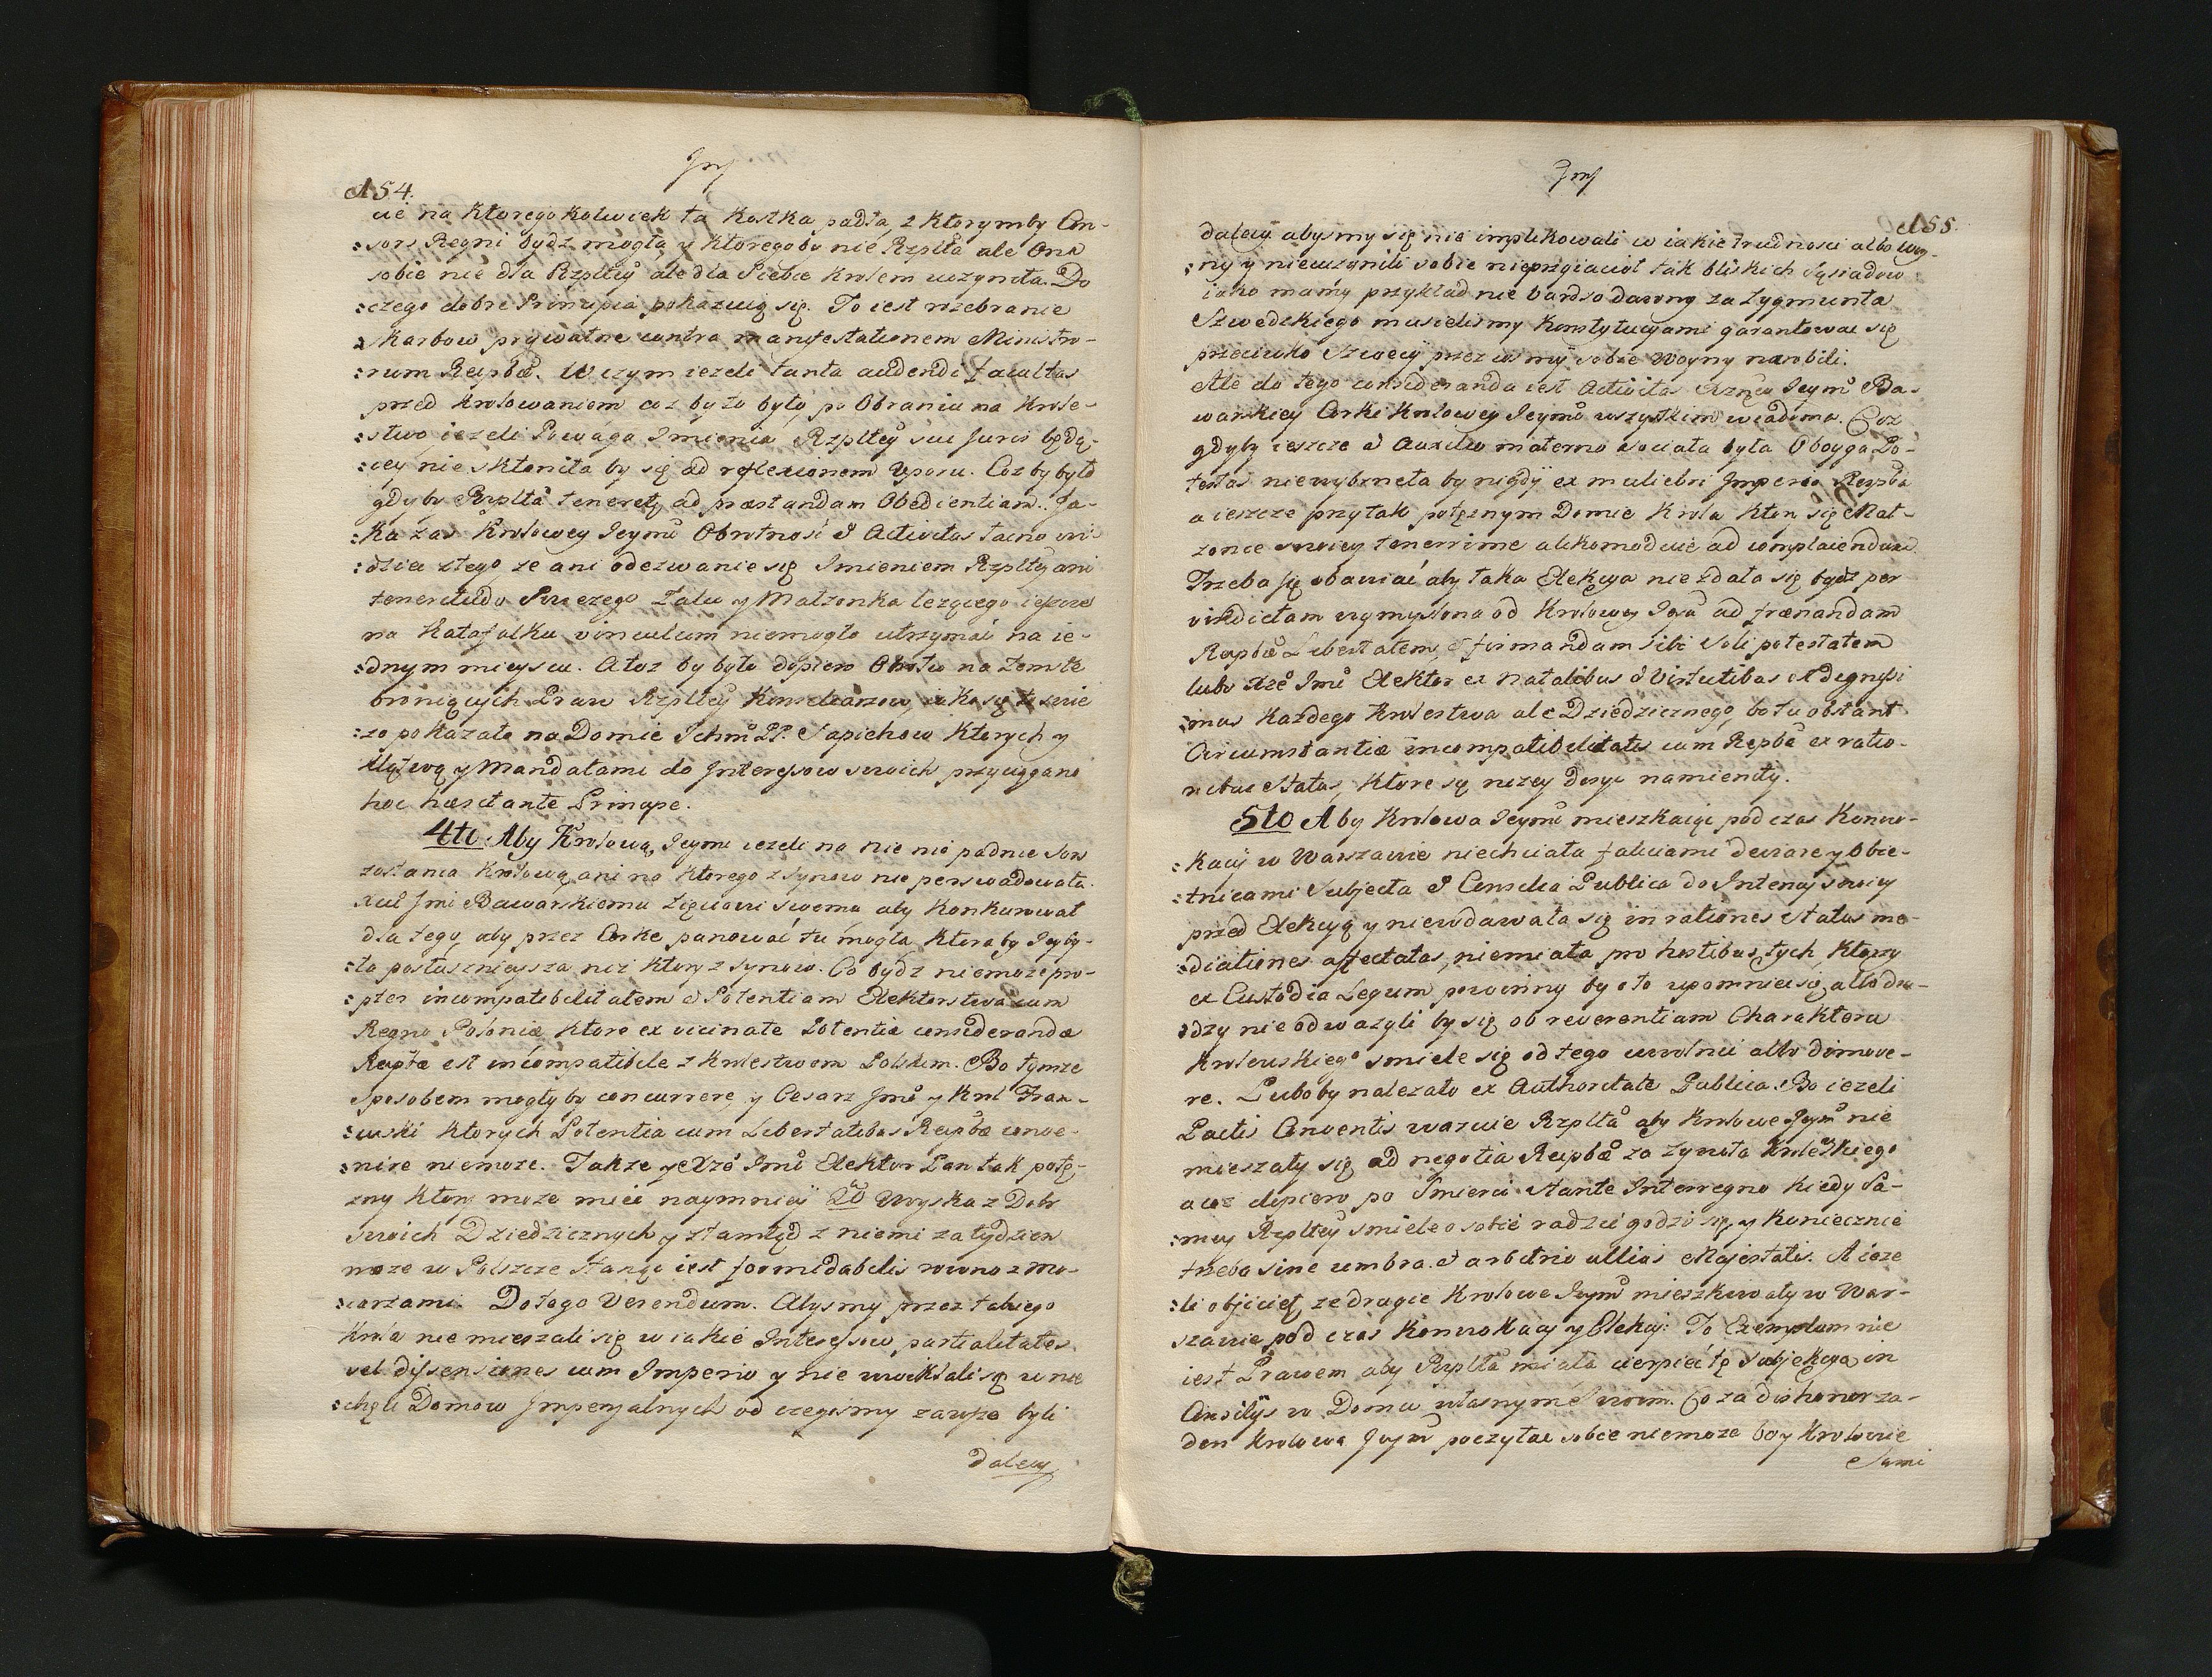 154.
cie na ktoregokolwiek ta kostka padła, z ktorymby Con-
:sors Regni bydz mogła, y ktoregoby nie Rzplta ale Ona
sobie nie dla Rzpltey ale dla Siebie Krolem uczyniła. Do
:czego dobre Principia pokazuią się. To iest rozebranie
skarbow prywatne contra manifestationem Ministro-
:rum Reipbæ. W czym iezeli tanta audendi facultas
przed Krolowaniem coz by to było, po Obraniu na Krole-
:stwo, iezeli Powaga Imienia Rzpltey sui Juris będą-
:cey nie skłoniła by się ad reflexionem Uporu. Coz by było
gdyby Rzplta teneret, ad præstandam Obedientiam. Ja-
:ka zas Krolowey Jeymci Obrotnosć & Activitas łacno wi-
:dziec z tego, ze ani odezwanie się Imieniem Rzpltey ani
teneritudo Swiezego Zalu y Małzonka lezącego ieszcze
na Katafalku vinculum niemogło utrzymać na ie-
:dnym mieyscu. A toz by było dopiero Ochotu na Zemste
broniących Praw Rzpltey Konsiliarzow, iako się to swie
:zo pokazało na Domie Ichm PP. Sapiehow ktorych y
klątwą y Mandatami do Interessow swoich przyciągano
hoc hæsitante Principe.
4to Aby Krolowa Jeymc iezeli na nie nie padnie Sors
zostania Krolową, ani na ktorego z Synow nie perswadowała
Xciu Jmci Bawarskiemu Zięciowi swemu aby Konkurował
dla tego, aby przez Corke panować tu mogła, ktoraby Jey by-
:ła posłusznieysza niz ktory z Synow. Co bydz niemoze pro-
:pter incompatibilitatem & Potentiam Elektorstwa cum
Regno Poloniæ, ktore ex vicinate Potentiæ consideranda
Reipbæ est incompatibile z Krolestwem Polskim. Bo tymze
sposobem mogłyby concurrere, y Cesarz Jmc y Krol Fran-
:cuski ktorych Potentia cum Libertatibus Reipbæ conve-
:nire niemoze. Takze y Xze Jmc Elektor Pan tak potę-
zny ktory moze mieć naymniey 20 Woyska z Dobr
swoich Dziedzicznych, y ztamtąd z niemi za tydzien
moze w Polszcze stanąć iest formidabilis rowno z Mo-
:carzami. Do tego Verendum. Abysmy przez takiego
Krola nie mieszali się w iakie Interessow partialitates
vel dissensiones cum Imperio y nie wwikłali się w nie
:chęci Domow Imperyalnych od czegosmy zawsze byli
daley

155.
daley abysmy się nie implikowali w iakie trudnosci albo woy-
:ny y nieuczynili sobie nieprzyiacioł tak bliskich Sąsiadow
iako mamy przykład nie bardzo dawny za Zygmunta
Szwedzkiego musielismy Konstytucyami garantować się
przeciwko Szwecyi przez co smy sobie Woyny narobili.
Ale do tego consideranda iest Activitas Xzney Jeymc Ba-
warskiey Corki Krolowey Jeymc wszystkim wiadoma. Coz
gdyby ieszcze & Auxilio materno sociata była Oboyga Po-
testas niewybrneła by nigdy ex muliebri Imperio Reipba
a ieszcze przy tak potęznym Domie Krola ktory się Mał-
zonce swoiey tenerrime akkomoduie ad complaiendum.
Trzeba się obawiać aby taka Elekcya nie zdała się bydz per
vindictam wymyslona od Krolowey Jey ad frænandam
Reipbæ Libertatem, & firmandam sibi Soli potestatem
lubo Xze Jmc Elektor ex Natalibus & Virtutibus est dignissi
:mus kazdego Krolestwa ale Dziedzicznego, bo tu obstant
Circumstantiæ incompatibilitatis cum Repbæ ex ratio-
nibus Status, ktore są nizey dosyc namienity.
5to Aby Krolowa Jeymc mieszkaiąc pod czas Konwo-
:kacyi w Warszawie niechciała falciami deviare y Obie-
:tnicami Subjecta & Consilia Publica do Intencyi swoiey
przed Elekcyą y niewdawała się in rationes status me-
:diationes affectatas, niemiała pro hostibus, tych, ktorzy
ex Custodia Legum powinny by o to upomniec się, albo dru-
:dzy nie odwazyli by się ob reverentiam Charakteru
Krolewskiego smiele się od tego uwolnic albo dimove-
re. Luboby nalezało ex Authoritate Publica. Bo iezeli
Pactis Conventis waruie Rzplta aby Krolowe Jeymc nie
mieszały się ad negotia Reipbæ za Zywota Krolewskiego
a coz dopiero po Smierci stante Interregno kiedy Sa-
:mey Rzpltey smiele o sobie radzić godzi się, y koniecznie
trzeba sine umbra & arbitrio ullius Majestatis. A ieze
:li objiciet, ze drugie Krolowe Jeymc mieszkiwały w War-
szawie pod czas Konwokacyi y Elekcyi: To Exemplum nie
iest Prawem aby Rzplta miała cierpieć tę Subjekcyą in
Consilys w Domu własnym Swoim. Co za dishonor za-
den Krolowa Jeymc poczytać sobie niemoze bo y Krolowie
Sami